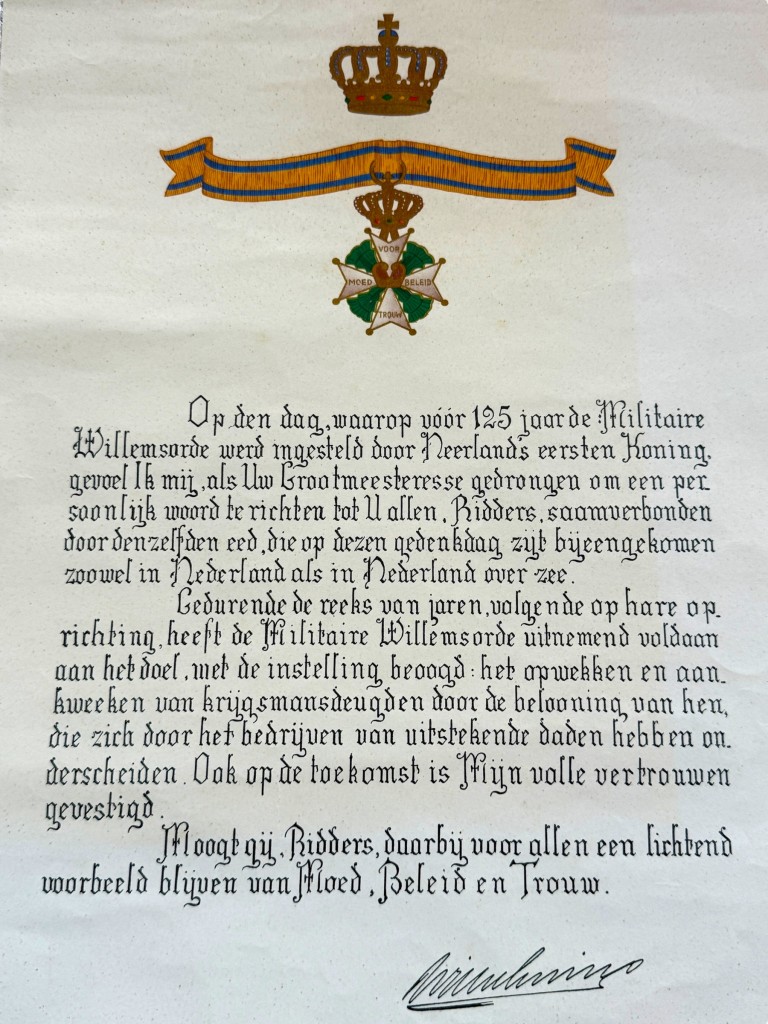 VOOR
MOED BELEID
TROUW
Op den dag, waarop vóór 125 jaar de Militaire
Willemsorde werd ingesteld door Neerland's eersten Koning,
gevoel Ik mij, als Uw Grootmeesteresse gedrongen om een per-
soonlijk woord te richten tot U allen, Ridders, saamverbonden
door denzelfden eed, die op dezen gedenkdag zijt bijeengekomen
zoowel in Nederland als in Nederland over zee.
Gedurende de reeks van jaren, volgende op hare op-
richting, heeft de Militaire Willemsorde uitnemend voldaan
aan het doel, met de instelling beoogd: het opwekken en aan-
kweeken van krijgsmansdeugden door de belooning van hen,
die zich door het bedrijven van uitstekende daden hebben on-
derscheiden. Ook op de toekomst is Mijn volle vertrouwen
gevestigd.
Moogt gij, Ridders, daarbij voor allen een lichtend
voorbeeld blijven van Moed, Beleid en Trouw.
Wilhelmina